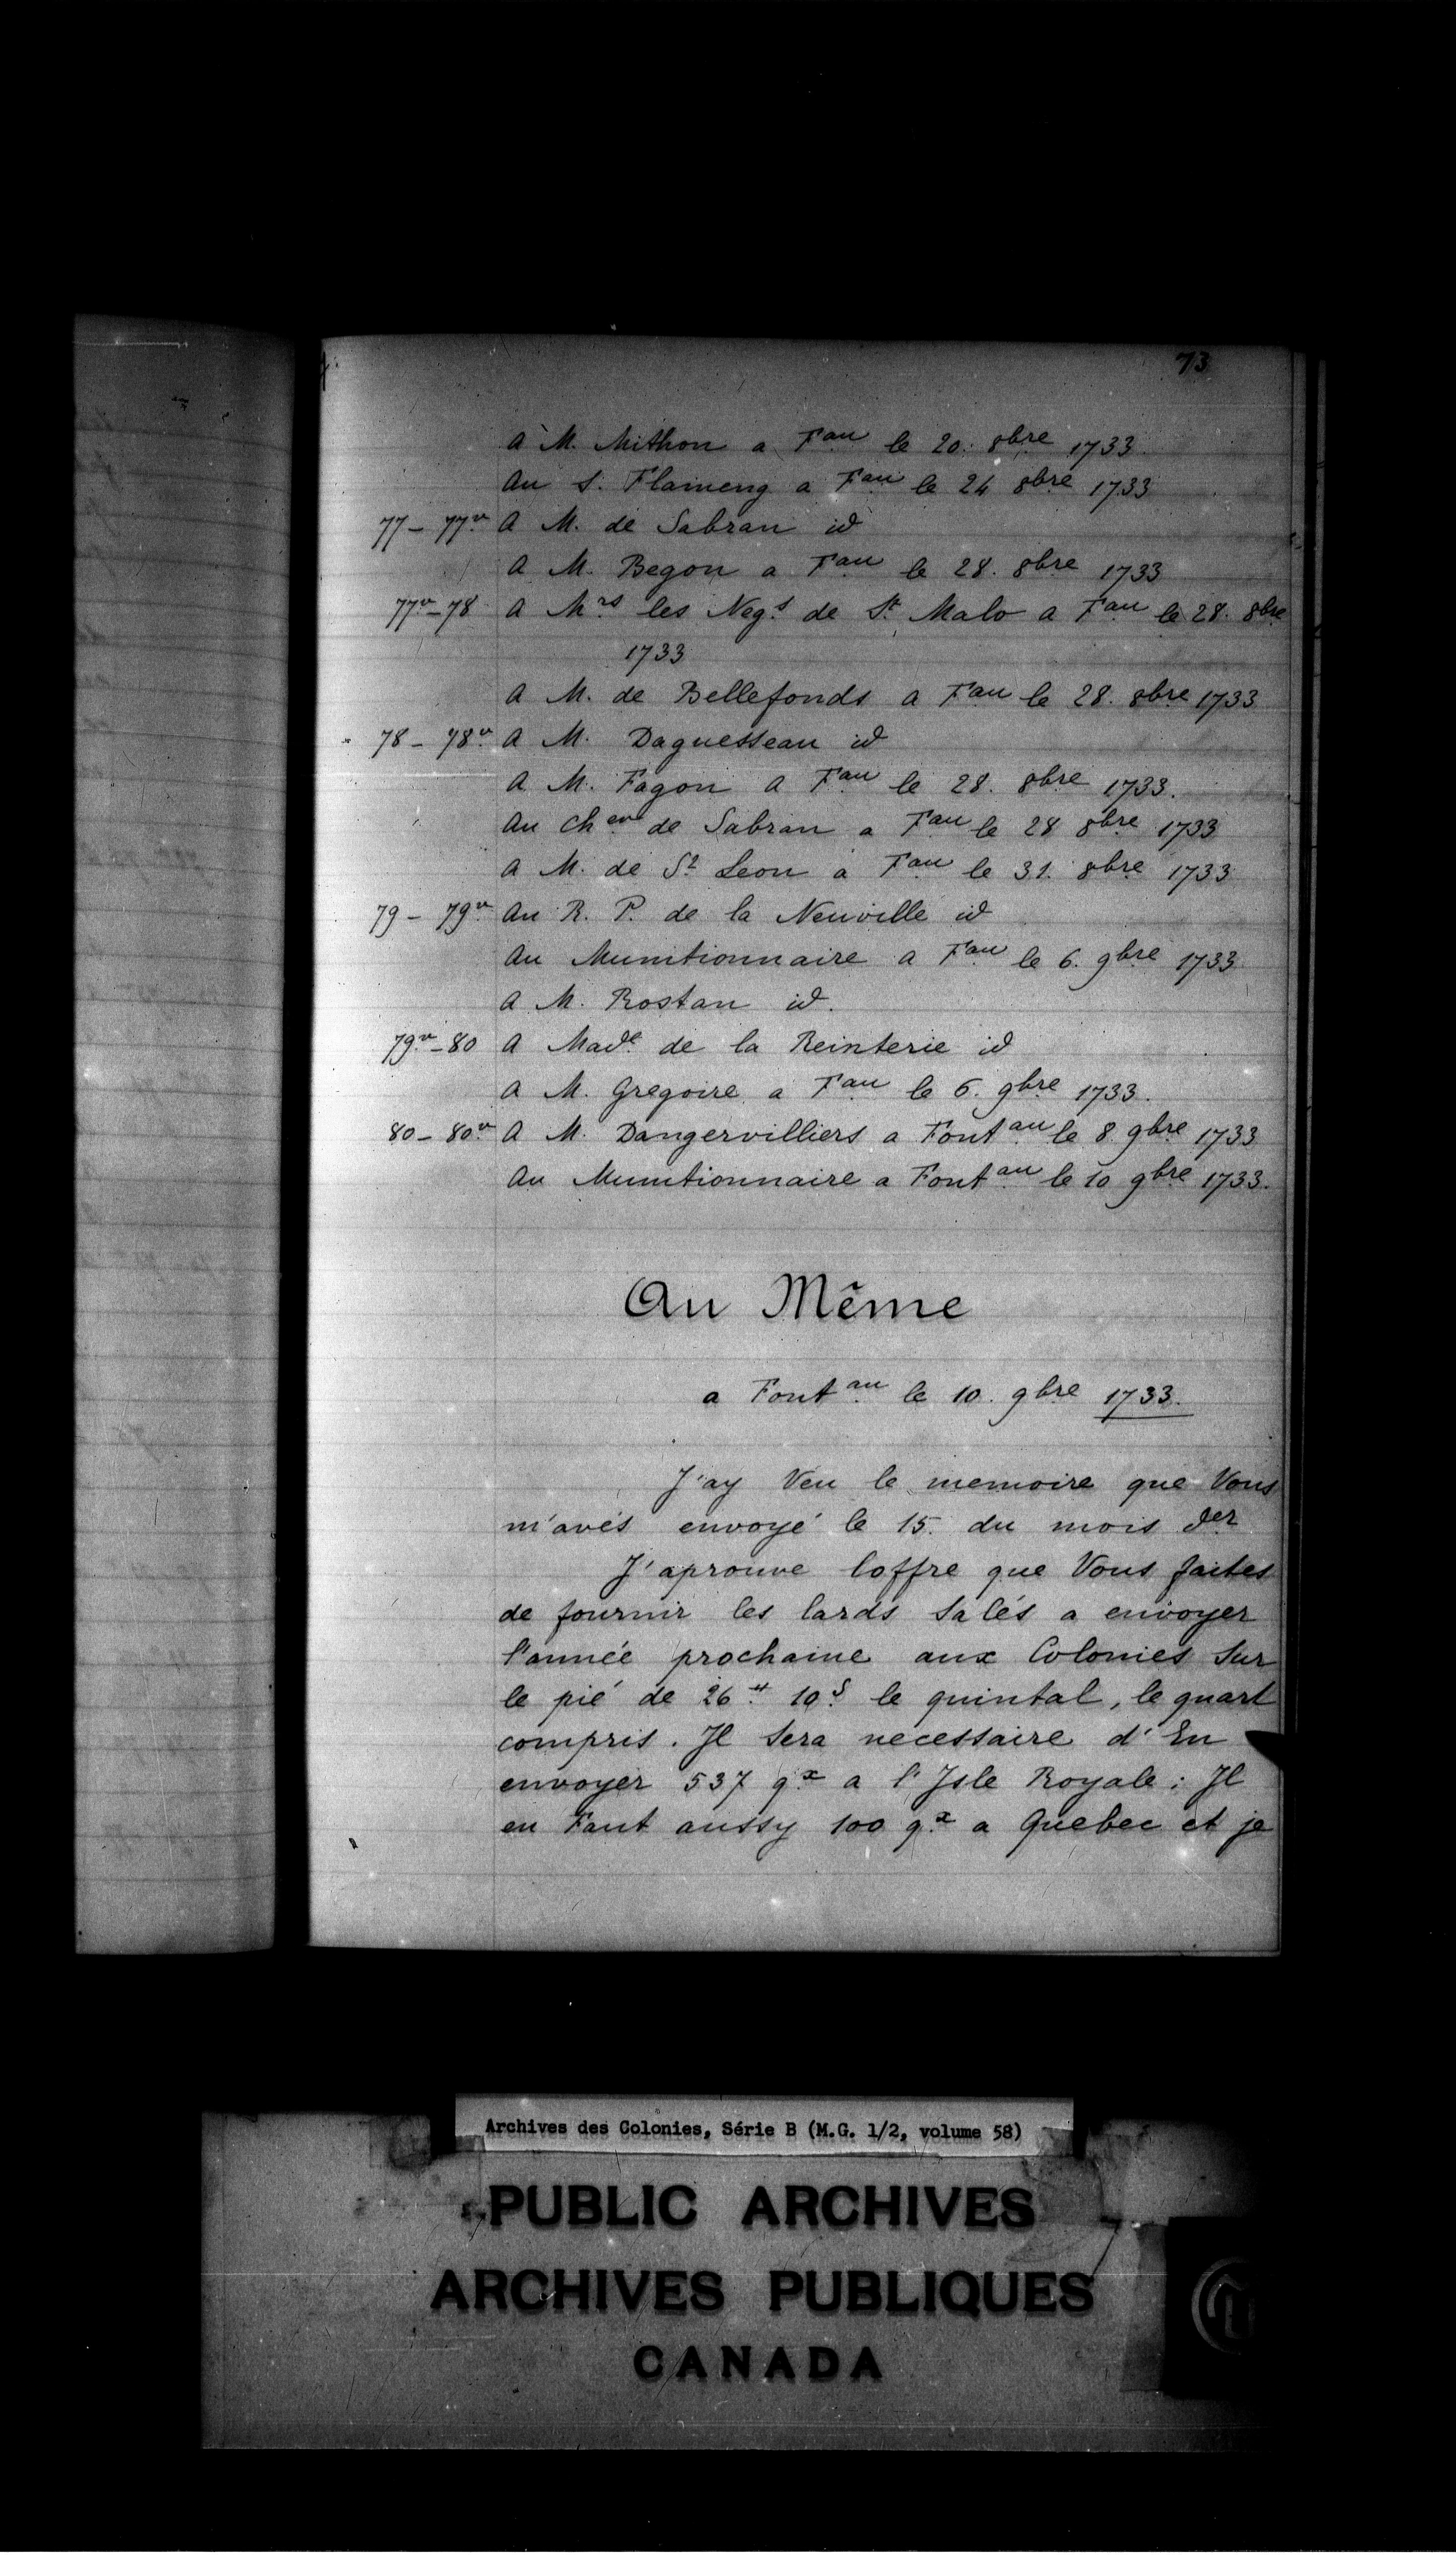 73
A M. Mithon a Fau le 20. 8bre 1733
Au S. Flameng a Fau le 24 8bre 1733
77 – 77v A M. de Sabran id
A M. Begon a Fau le 28. 8bre 1733
77v – 78 A Mrs les Negs de St Malo a Fau le 28. 8bre
1733
A M. de Bellefonds a Fau le 28. 8bre 1733
78 – 78v A M. Daguesseau id
A M. Fagon A Fau le 28. 8bre 1733.
Au Chev de Sabran a Fau le 28 8bre 1733
A M. de St Leon a Fau le 31. 8bre 1733
79 – 79v Au R. P. de la Neuville id
Au Munitionnaire a Fau le 6. 9bre 1733
A M. Rostan id.
79v – 80 A Made de la Reinterie id
A M. Gregoire a Fau le 6. 9bre 1733.
80 – 80v A M. Dangervilliers a Fontau le 8 9bre 1733
Au Munitionnaire a Fontau le 10 9bre 1733.
Au Même
a Fontau le 10. 9bre 1733.
J'ay Veu le memoire que Vous
m'avés envoyé le 15. du mois der
J'aprouve loffre que Vous faites
de fournir les lards salés a envoyer
l'année prochaine aux Colonies sur
le pié de 26tt 10s le quintal, le quart
compris. Il sera necessaire d'En
envoyer 537 qx a l'Isle Royale; Il
en Faut aussy 100 qx a Quebec et je
Archives des Colonies, Série B (M.G. 1/2, volume 58)
PUBLIC ARCHIVES
ARCHIVES PUBLIQUES
CANADA